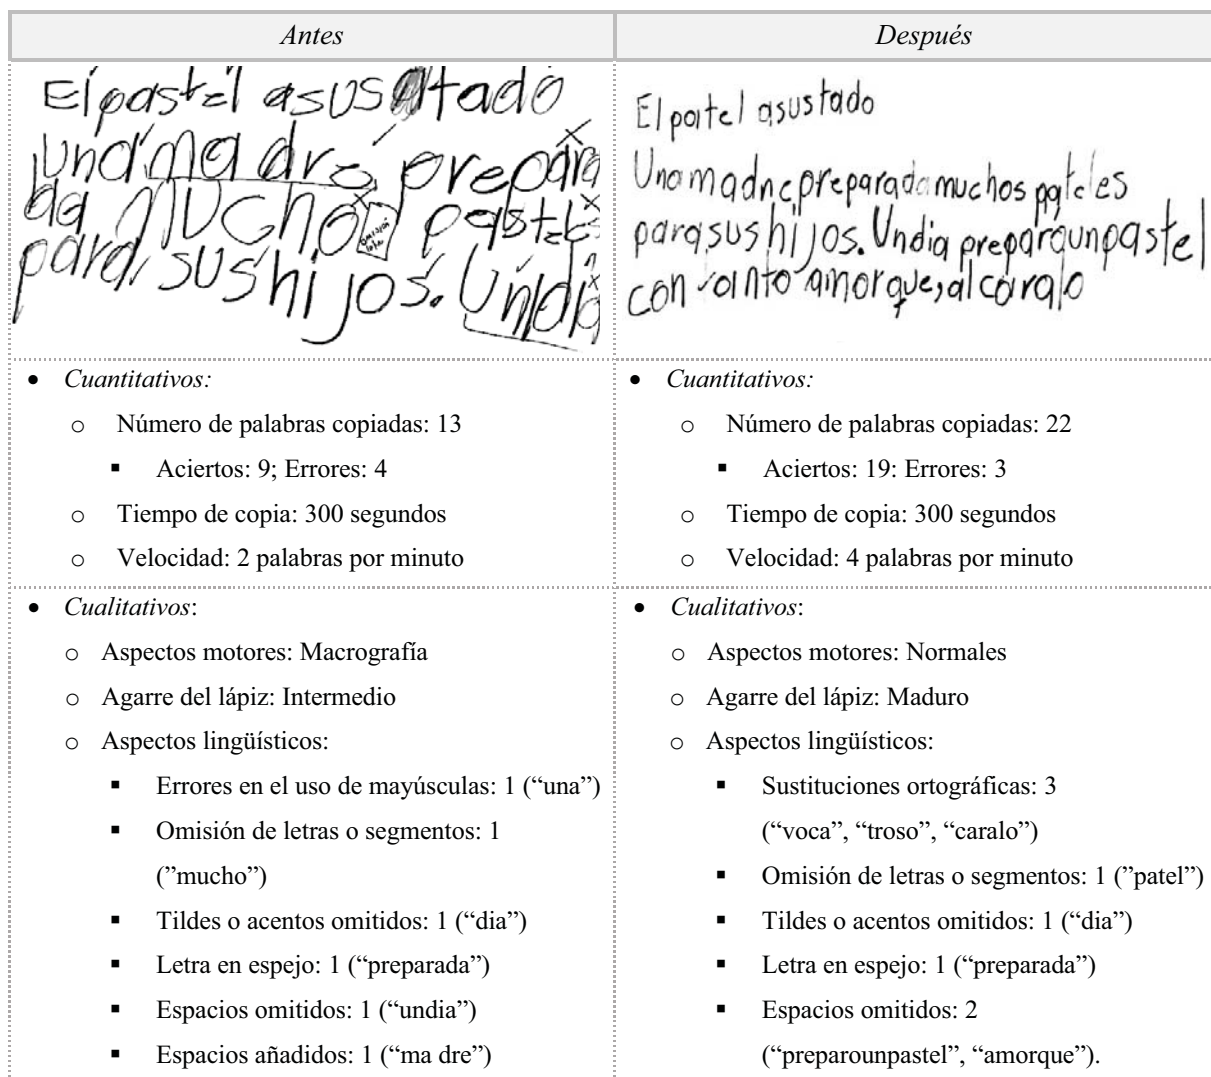 Antes
Después
El pastel asustado
una ma dre prepara
da mucho pasteles
para sus hijos. Undia
omisión letra
El pastel asustado
Una madre preparada muchos pateles
para sus hijos. Undia preparounpastel
con tanto amorque, al caralo
• Cuantitativos:
o Número de palabras copiadas: 13
▪ Aciertos: 9; Errores: 4
o Tiempo de copia: 300 segundos
o Velocidad: 2 palabras por minuto
• Cuantitativos:
o Número de palabras copiadas: 22
▪ Aciertos: 19: Errores: 3
o Tiempo de copia: 300 segundos
o Velocidad: 4 palabras por minuto
• Cualitativos:
o Aspectos motores: Macrografía
o Agarre del lápiz: Intermedio
o Aspectos lingüísticos:
▪ Errores en el uso de mayúsculas: 1 (“una”)
▪ Omisión de letras o segmentos: 1
(”mucho”)
▪ Tildes o acentos omitidos: 1 (“dia”)
▪ Letra en espejo: 1 (“preparada”)
▪ Espacios omitidos: 1 (“undia”)
▪ Espacios añadidos: 1 (“ma dre”)
• Cualitativos:
o Aspectos motores: Normales
o Agarre del lápiz: Maduro
o Aspectos lingüísticos:
▪ Sustituciones ortográficas: 3
(“voca”, “troso”, “caralo”)
▪ Omisión de letras o segmentos: 1 (”patel”)
▪ Tildes o acentos omitidos: 1 (“dia”)
▪ Letra en espejo: 1 (“preparada”)
▪ Espacios omitidos: 2
(“preparounpastel”, “amorque”).